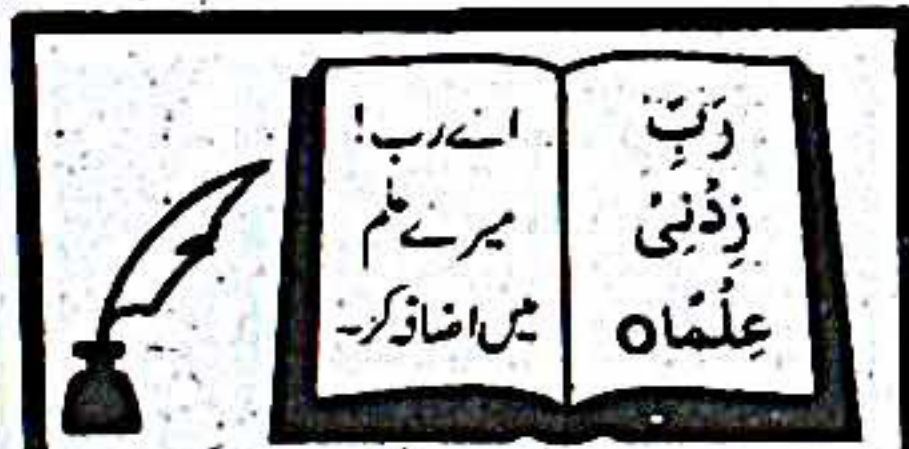 رَبِّ
زِدْنِیْ
عِلْمًا○
اے رب!
میرے علم
میں اضافہ کر۔